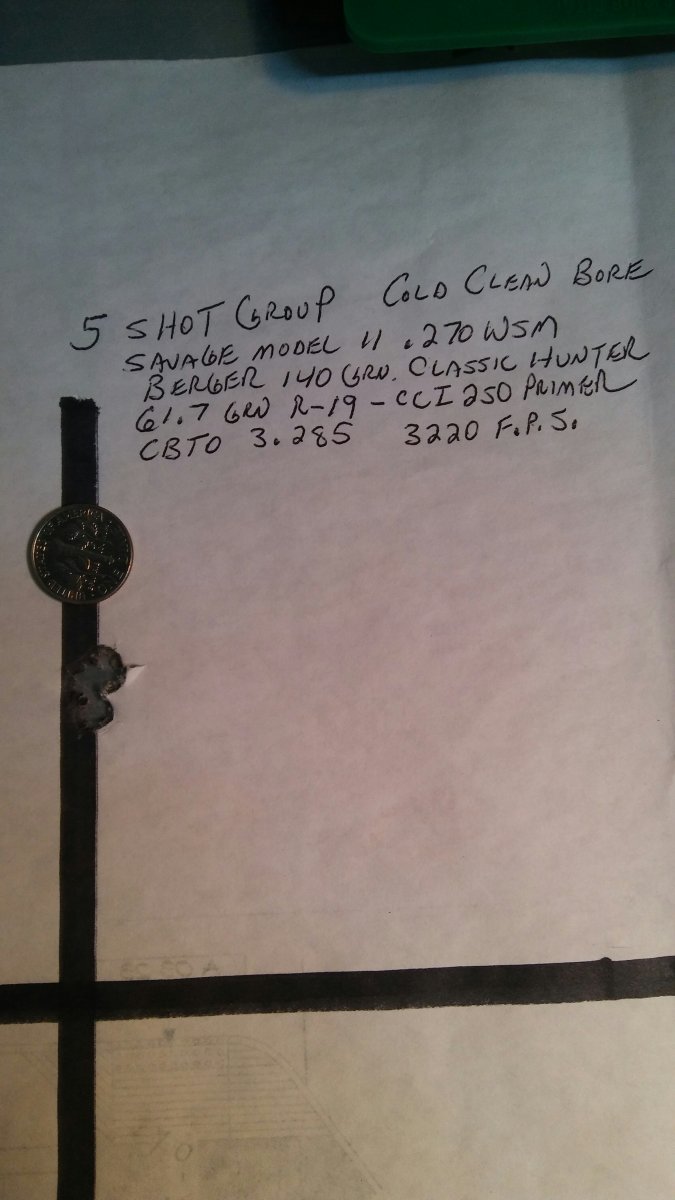 5 SHOT GROUP COLD CLEAN BORE
SAVAGE MODEL 11 .270 WSM
BERGER 140 GRN. CLASSIC HUNTER
61.7 GRN R-19 - CCI 250 PRIMER
CBTO 3.285 3220 F.P.S.